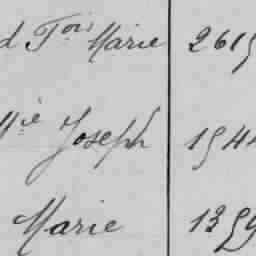 d Fois Marie 2615
Mie Joseph 1544
Marie 1359